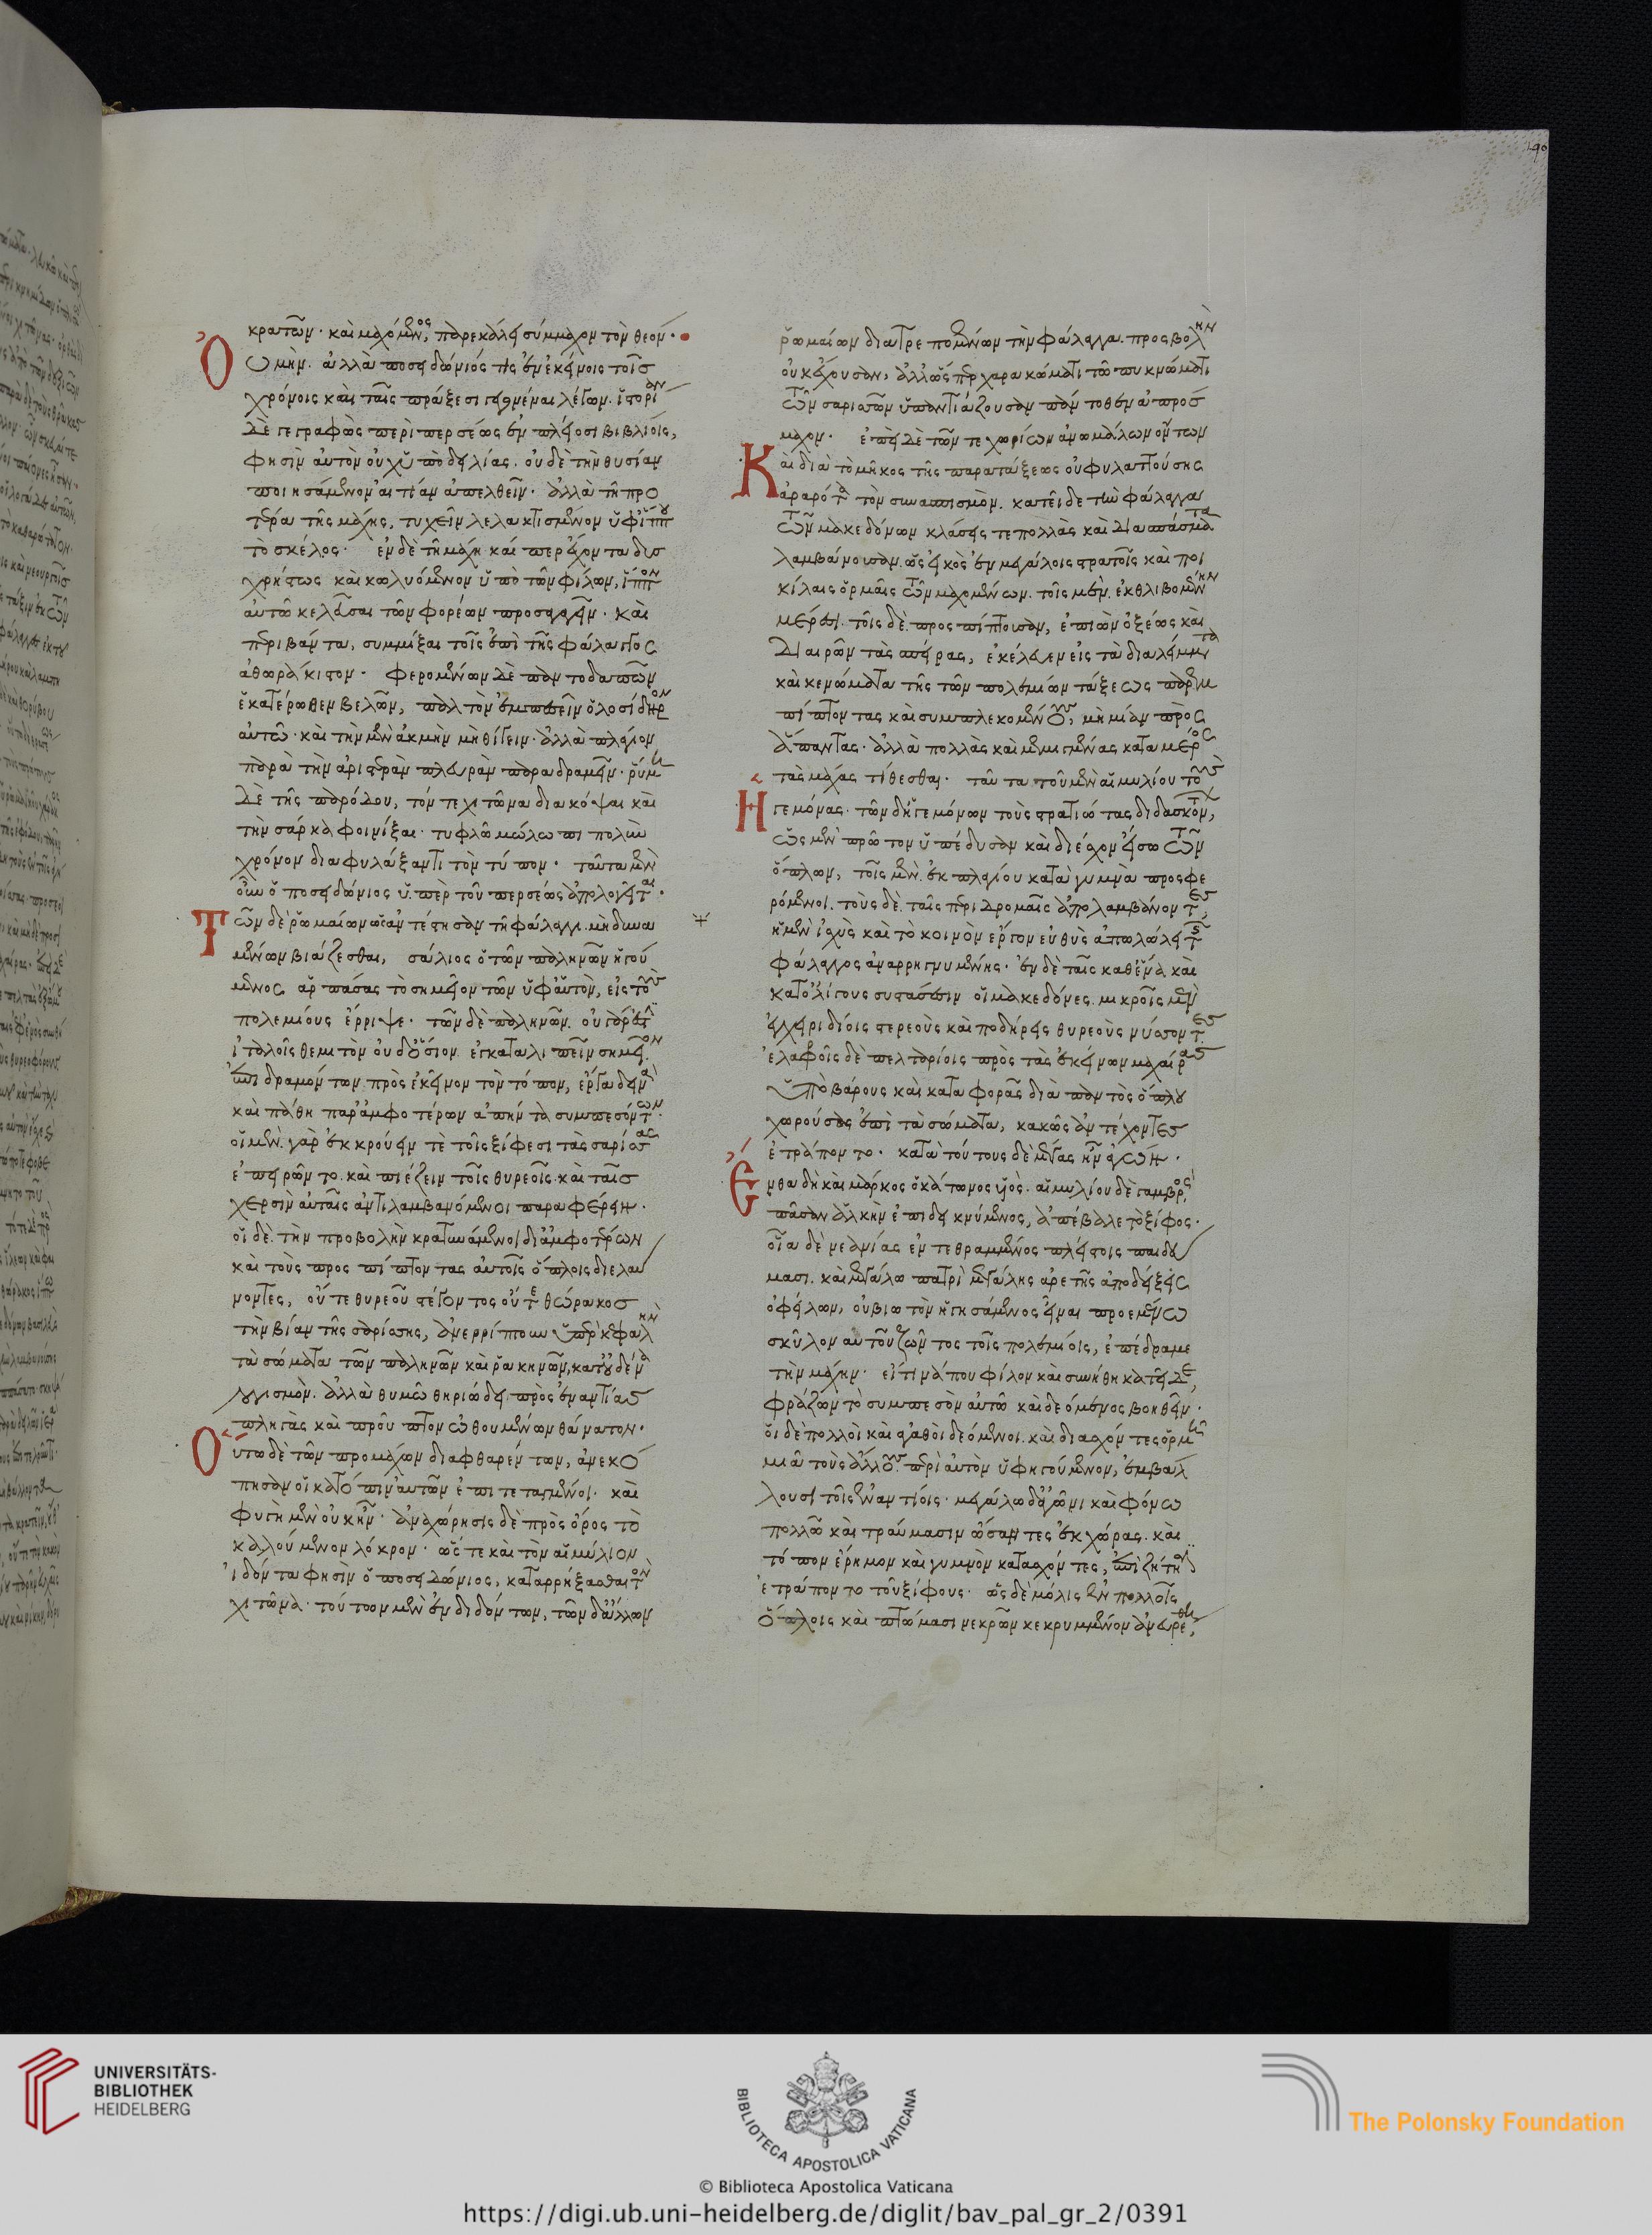 190
κρατῶν· καὶ μαχόμενος, παρεκάλει σύμμαχον τὸν θεόν·
Οὐ μὴν ἀλλὰ ποσειδώνιός τις ἐν ἐκείνοις τοῖς
χρόνοις καὶ ταῖς πράξεσι γεγονέναι λέγων, ἱστορίαν
δὲ γεγραφὼς περὶ περσέως ἐν πλείοσι βιβλίοις,
φησὶν αὐτὸν οὐχ ὑπὸ δειλίας, οὐδὲ τὴν θυσίαν
ποιησάμενον αἰτίαν ἀπελθεῖν· ἀλλὰ τῇ προ
τέρα τῆς μάχης, τυχεῖν λελακτισμένον ὑφ ἵππου
τὸ σκέλος· ἐν δὲ τῇ μάχῃ καίπερ ἔχοντα δυσ
χρήστως καὶ κωλυόμενον ὑπὸ τῶν φίλων, ἵππον
αὐτῶ κελεῦσαι τῶν φορέων προσαγαγεῖν· καὶ
περιβάντα, συμμίξαι τοῖς ἐπὶ τῆς φάλαγγος
ἀθωράκιστον· φερομένων δὲ παντοδαπῶν
ἑκατέρωθεν βελῶν, παλτὸν ἐμπεσεῖν ὁλοσίδηρον
αὐτῶ· καὶ τὴν μὲν ἀκμὴν μὴ θίγειν· ἀλλὰ πλάγιον
παρὰ τὴν ἀριστερὰν πλευρὰν παραδραμεῖν· ῥύμη
δὲ τῆς παρόδου, τόν τε χιτῶνα διακόψαι καὶ
τὴν σάρκα φοινίξαι· τυφλῶ μώλωπι πολὺν
χρόνον διαφυλάξαντι τὸν τύπον· ταῦτα μὲν
οὖν ὁ ποσειδώνιος ὑπὲρ τοῦ περσέως ἀπολογεῖται·
Τῶν δὲ ῥωμαίων ὡς ἀντέστησαν τῇ φάλαγγι μὴ δυνα
μένων βιάζεσθαι, σάλιος ὁ τῶν πελιγνῶν ἡγού
μενος ἁρπάσας τὸ σημεῖον τῶν ὑφ αὑτὸν, εἰς τοὺς
πολεμίους ἔρριψε· τῶν δὲ πελιγνῶν οὐ γάρ ἐστιν
ἰταλοῖς θεμιτὸν οὐδ ὅσιον ἐγκαταλιπεῖν σημεῖον·
ἐπιδραμόντων πρὸς ἐκεῖνον τὸν τόπον, ἔργα δεινὰ
καὶ πάθη παρ ἀμφοτέρων ἀπήντα συμπεσόντων·
οἱ μὲν γὰρ ἐκκρούειν τὲ τοῖς ξίφεσι τὰς σαρίσας
ἐπειρῶντο καὶ πιέζειν τοῖς θυρεοῖς καὶ ταῖς
χερσὶν αὐταῖς ἀντιλαμβανόμενοι παραφέρειν·
οἱ δὲ τὴν προβολὴν κρατυνάμενοι δι ἀμφοτέρων
καὶ τοὺς προσπίπτοντας αὐτοῖς ὅπλοις διελαύ
νοντες, οὔτε θυρεοῦ στέγοντος οὔτε θώρακος
τὴν βίαν τῆς σαρίσης, ἀνερρίπτουν ὑπὲρ κεφαλὴν
τὰ σώματα τῶν πελιγνῶν καὶ μαρρακηνῶν, κατ οὐδένα
λογισμὸν ἀλλὰ θυμῶ θηριώδει πρὸς ἐναντίας
πληγὰς καὶ προῦπτον ὠθουμένων θάνατον·
Οὕτω δὲ τῶν προμάχων διαφθαρέντων, ἀνεκό
πησαν οἱ κατόπιν αὐτῶν ἐπιτεταγμένοι· καὶ
φυγὴ μὲν οὐκ ἦν· ἀναχώρησις δὲ πρὸς ὄρος τὸ
καλούμενον λόκρον· ὥστε καὶ τὸν αἰμύλιον
ἰδόντα φησὶν ὁ ποσειδώνιος, καταρρήξασθαι τὸν
χιτῶνα· τούτων μὲν ἐνδιδόντων, τῶν δ ἄλλων
ῥωμαίων διατρεπομένων τὴν φάλαγγα προσβολὴν
οὐκ ἔχουσαν, ἀλλ ὥσπερ χαρακώματι τῶ πυκνώματι
τῶν σαρισῶν ὑπαντιάζουσαν πάντοθεν ἀπρόσ
μαχον· ἐπεὶ δὲ τῶν τε χωρίων ἀνωμάλων ὄντων
Καὶ διὰ τὸ μῆκος τῆς παρατάξεως οὐ φυλαττούσης
ἀραρότα τὸν συνασπισμὸν, κατεῖδε τὴν φάλαγγα
τῶν μακεδόνων κλάσεις τε πολλὰς καὶ διασπάσματα
λαμβάνουσαν, ὡς εἰκὸς ἐν μεγάλοις στρατοῖς καὶ ποι
κίλαις ὁρμαῖς τῶν μαχομένων, τοῖς μὲν ἐκθλιβομένην
μέρεσι· τοῖς δὲ προσπίπτουσαν, ἐπιὼν ὀξέως καὶ
διαιρῶν τὰς σπείρας, ἐκέλευεν εἰς τὰ διαλείμματα
καὶ κενώματα τῆς τῶν πολεμίων τάξεως παρεμ
πίπτοντας καὶ συμπλεκομένους, μὴ μίαν πρὸς
ἅπαντας· ἀλλὰ πολλὰς καὶ μεμιγμένας κατὰ μέρος
τὰς μάχας τίθεσθαι· ταῦτα τοῦ μὲν αἰμυλίου τοὺς
Ἡγεμόνας· τῶν δ ἡγεμόνων τοὺς στρατιώτας διδασκόντων,
ὡς μὲν πρῶτον ὑπέδυσαν καὶ διέσχον εἴσω τῶν
ὅπλων, τοῖς μὲν ἐκ πλαγίου κατὰ γυμνὰ προσφε
ρόμενοι, τοὺς δὲ ταῖς περιδρομαῖς ἀπολαμβάνοντες,
ἡ μὲν ἰσχὺς καὶ τὸ κοινὸν ἔργον εὐθὺς ἀπωλώλει τῆς
φάλαγγος ἀναρρηγνυμένης· ἐν δὲ ταῖς καθ ἕνα καὶ
κατ ὀλίγους συστάσεσιν οἱ μακεδόνες μικροῖς μὲν
ἐγχειριδίοις στερεοὺς καὶ ποδήρεις θυρεοὺς νύσσοντες
ἐλαφροῖς δὲ πελταρίοις πρὸς τὰς ἐκείνων μαχαίρας
ὑπὸ βάρους καὶ καταφορᾶς διὰ παντὸς ὅπλου
χωρούσας ἐπὶ τὰ σώματα, κακῶς ἀντέχοντες
ἐτράποντο· κατὰ τούτους δὲ μέγας ἦν ἀγών·
Ἔνθα δὴ καὶ μάρκος ὁ κάτωνος υἱὸς· αἰμυλίου δὲ γαμβρὸς,
πᾶσαν ἀλκὴν ἐπιδεικνύμενος, ἀπέβαλε τὸ ξίφος·
οἷα δὲ νεανίας ἐντεθραμμένος πλείστοις παιδεύ
μασι· καὶ μεγάλω πατρὶ μεγάλης ἀρετῆς ἀποδείξεις
ὀφείλων, οὐ βιωτὸν ἡγησάμενος εἶναι προεμένω
σκῦλον αὑτοῦ ζῶντος τοῖς πολεμίοις, ἐπέδραμε
τὴν μάχην· εἴ τινά που φίλον καὶ συνήθη κατεῖδε,
φράζων τὸ συμπεσὸν αὐτῶ καὶ δεόμενος βοηθεῖν·
οἱ δὲ πολλοὶ καὶ ἀγαθοὶ δεόμενοι καὶ διασχόντες ὁρμῆ
μιᾶ τοὺς ἄλλους περὶ αὐτὸν ὑφηγούμενον, ἐμβάλ
λουσι τοῖς ἐναντίοις· μεγάλω δ ἀγῶνι καὶ φόνω
πολλῶ καὶ τραύμασιν ὤσαντες ἐκ χώρας καὶ
τόπον ἔρημον καὶ γυμνὸν κατασχόντες, ἐπὶ ζήτησιν
ἐτράποντο τοῦ ξίφους· ὡς δὲ μόλις ἐν πολλοῖς
ὅπλοις καὶ πτώμασι νεκρῶν κεκρυμμένον ἀνευρέθη,
UNIVERSITÄTS-
BIBLIOTHEK
HEIDELBERG
BIBLIOTECA APOSTOLICA VATICANA
© Biblioteca Apostolica Vaticana
The Polonsky Foundation
https://digi.ub.uni-heidelberg.de/diglit/bav_pal_gr_2/0391